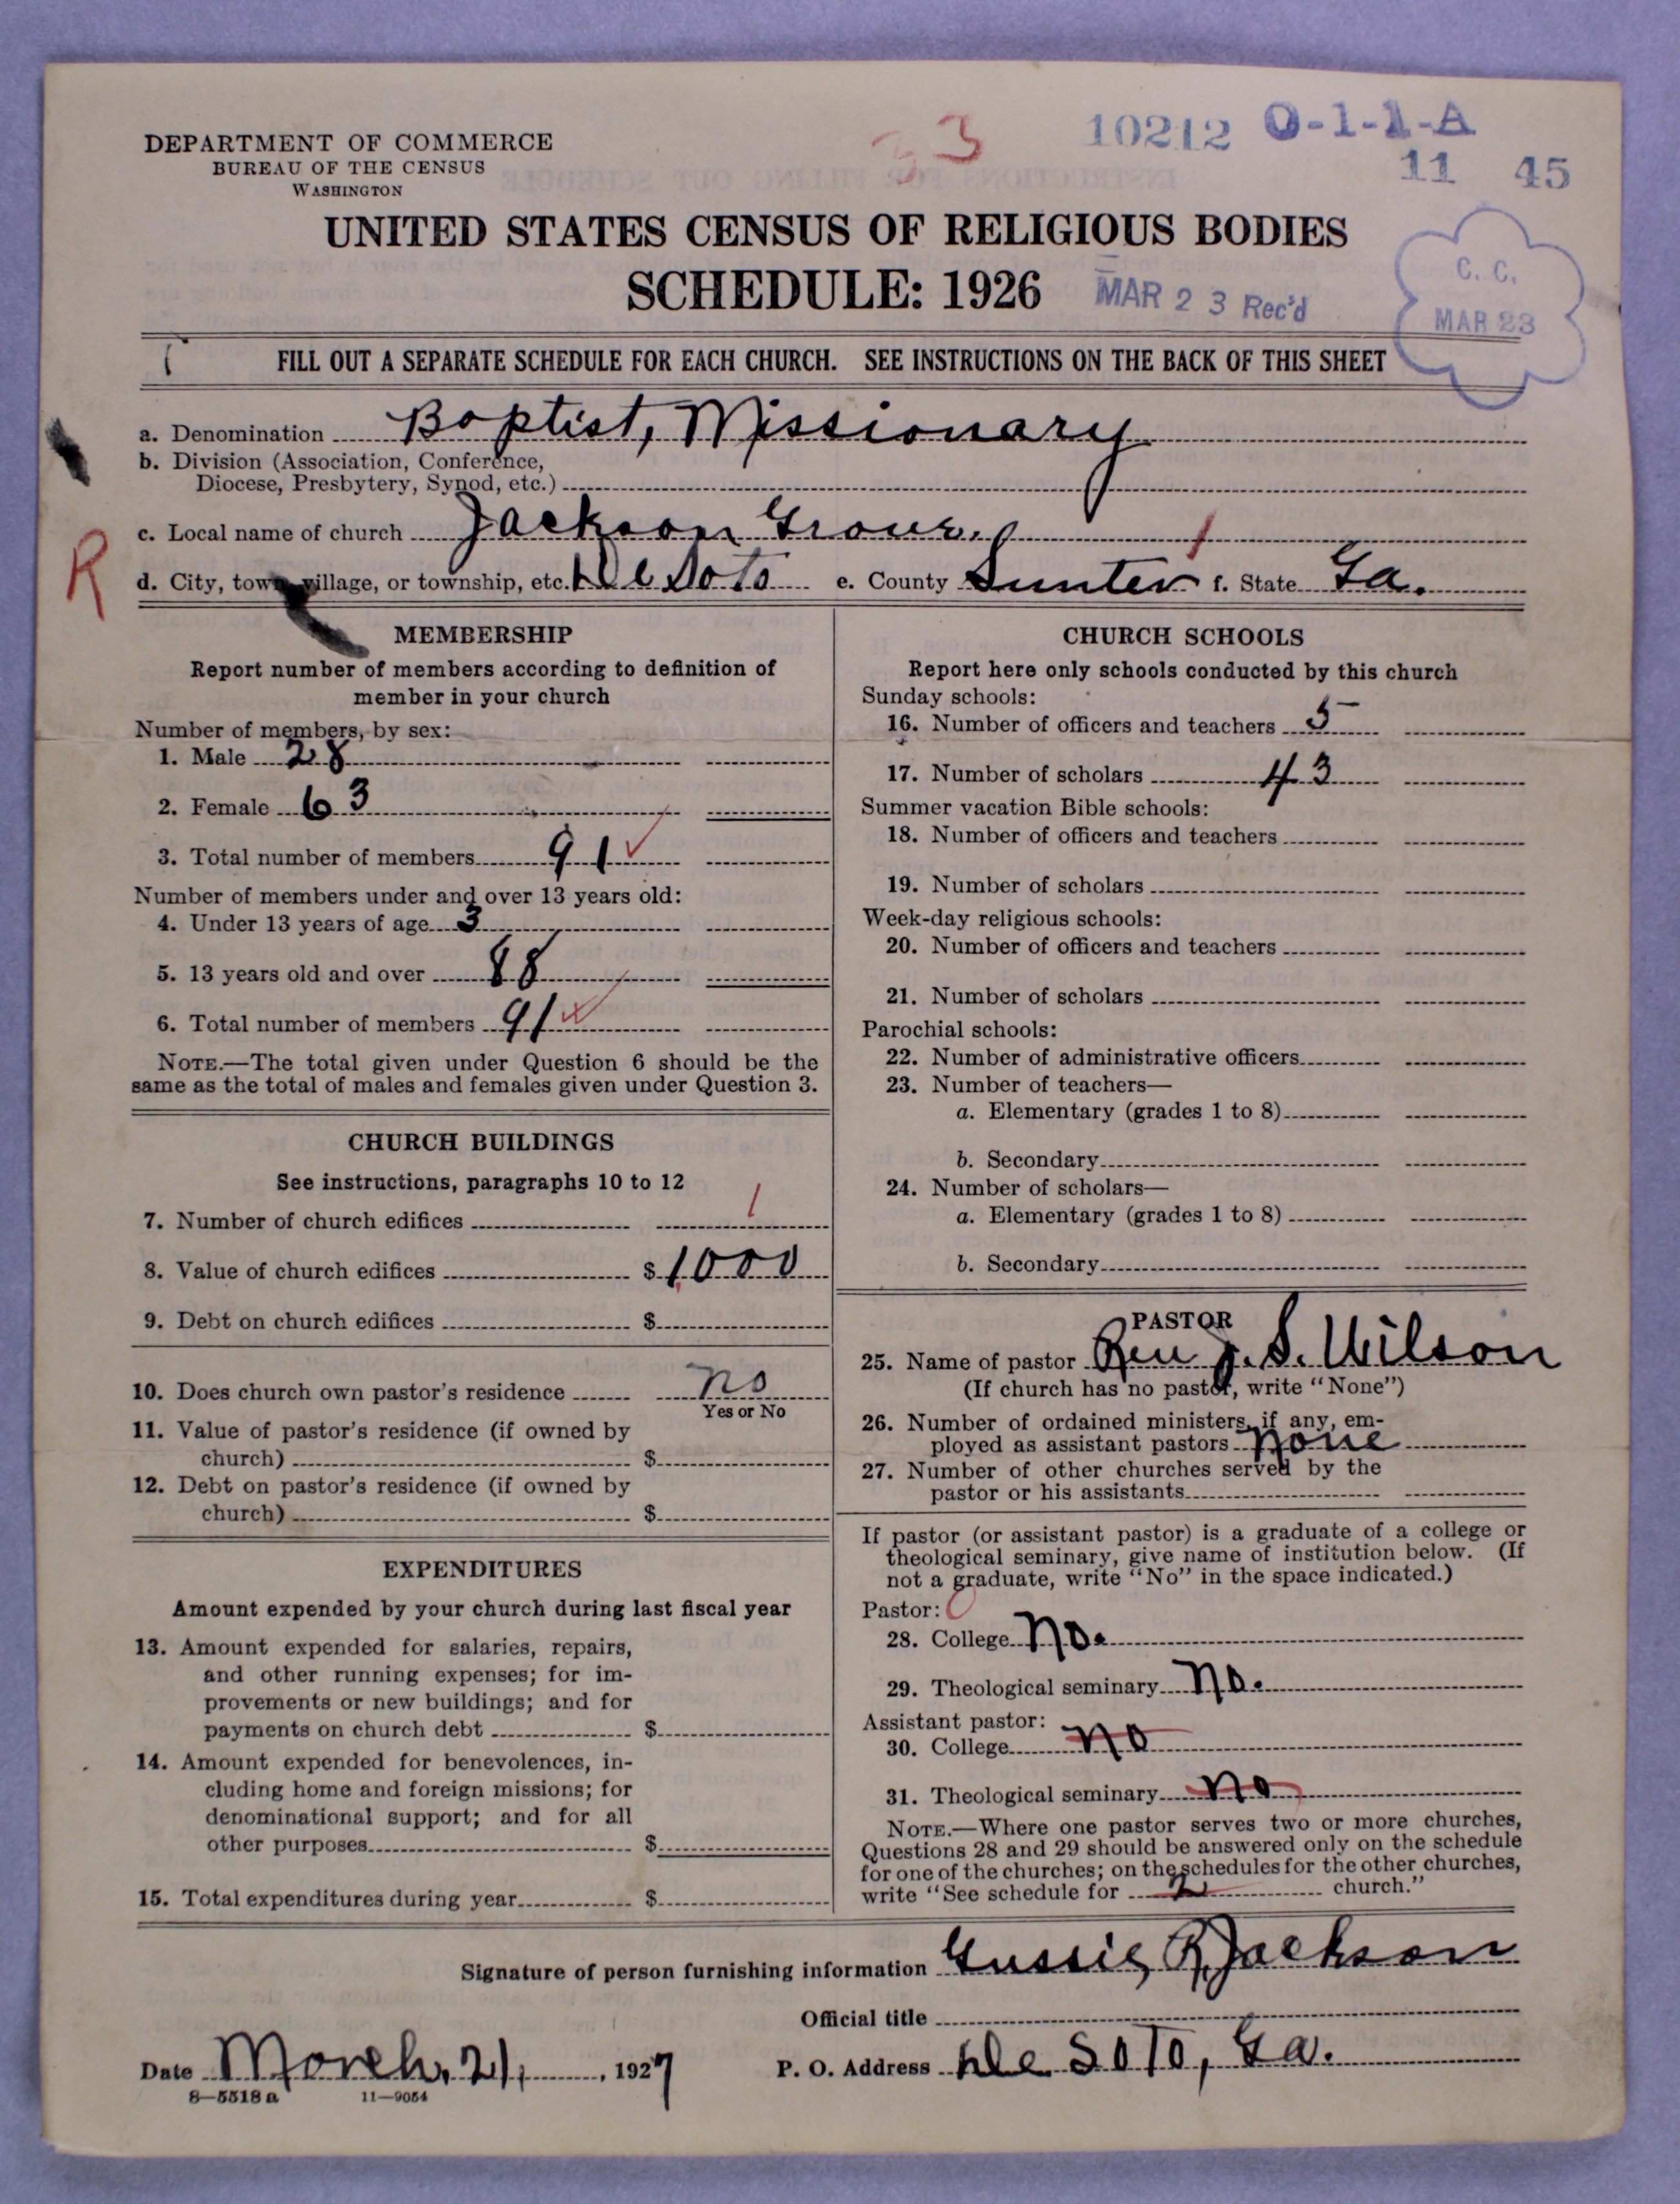 33 10212 O-1-1-A
11 45
DEPARTMENT OF COMMERCE
BUREAU OF THE CENSUS
WASHINGTON
UNITED STATES CENSUS OF RELIGIOUS BODIES
SCHEDULE: 1926
MAR 23 Rec'd
C. C.
MAR 23
FILL OUT A SEPARATE SCHEDULE FOR EACH CHURCH. SEE INSTRUCTIONS ON THE BACK OF THIS SHEET
a. Denomination Baptist, Missionary
b. Division (Association, Conference,
Diocese, Presbytery, Synod, etc.)
c. Local name of church Jackson Grove.
R
d. City, town, village, or township, etc. De Soto e. County Sumter f. State Ga.
MEMBERSHIP
Report number of members according to definition of
member in your church
Number of members, by sex:
1. Male 28
2. Female 63
3. Total number of members 91
Number of members under and over 13 years old:
4. Under 13 years of age 3
5. 13 years old and over 88
6. Total number of members 91
NOTE.—The total given under Question 6 should be the
same as the total of males and females given under Question 3.
CHURCH BUILDINGS
See instructions, paragraphs 10 to 12
7. Number of church edifices 1
8. Value of church edifices $1000
9. Debt on church edifices $
10. Does church own pastor's residence no
Yes or No
11. Value of pastor's residence (if owned by
church) $
12. Debt on pastor's residence (if owned by
church) $
EXPENDITURES
Amount expended by your church during last fiscal year
13. Amount expended for salaries, repairs,
and other running expenses; for im-
provements or new buildings; and for
payments on church debt $
14. Amount expended for benevolences, in-
cluding home and foreign missions; for
denominational support; and for all
other purposes $
15. Total expenditures during year $
CHURCH SCHOOLS
Report here only schools conducted by this church
Sunday schools:
16. Number of officers and teachers 5
17. Number of scholars 43
Summer vacation Bible schools:
18. Number of officers and teachers
19. Number of scholars
Week-day religious schools:
20. Number of officers and teachers
21. Number of scholars
Parochial schools:
22. Number of administrative officers
23. Number of teachers—
a. Elementary (grades 1 to 8)
b. Secondary
24. Number of scholars—
a. Elementary (grades 1 to 8)
b. Secondary
PASTOR
25. Name of pastor Rev J. S. Wilson
(If church has no pastor, write "None")
26. Number of ordained ministers, if any, em-
ployed as assistant pastors none
27. Number of other churches served by the
pastor or his assistants
If pastor (or assistant pastor) is a graduate of a college or
theological seminary, give name of institution below. (If
not a graduate, write "No" in the space indicated.)
Pastor: 0
28. College no.
29. Theological seminary no.
Assistant pastor:
30. College no
31. Theological seminary no
NOTE.—Where one pastor serves two or more churches,
Questions 28 and 29 should be answered only on the schedule
for one of the churches; on the schedules for the other churches,
write "See schedule for 2 church."
Signature of person furnishing information Gussie R. Jackson
Official title
Date March, 21, 1927 P. O. Address De Soto, Ga.
8—5518a 11—9054